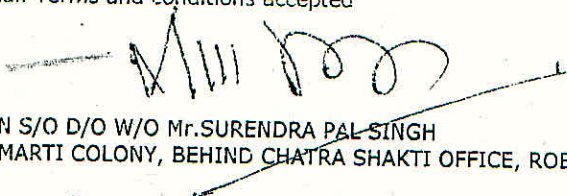 Terms and conditions accepted
N S/O D/O W/O Mr.SURENDRA PAL SINGH
MARTI COLONY, BEHIND CHATRA SHAKTI OFFICE, ROB